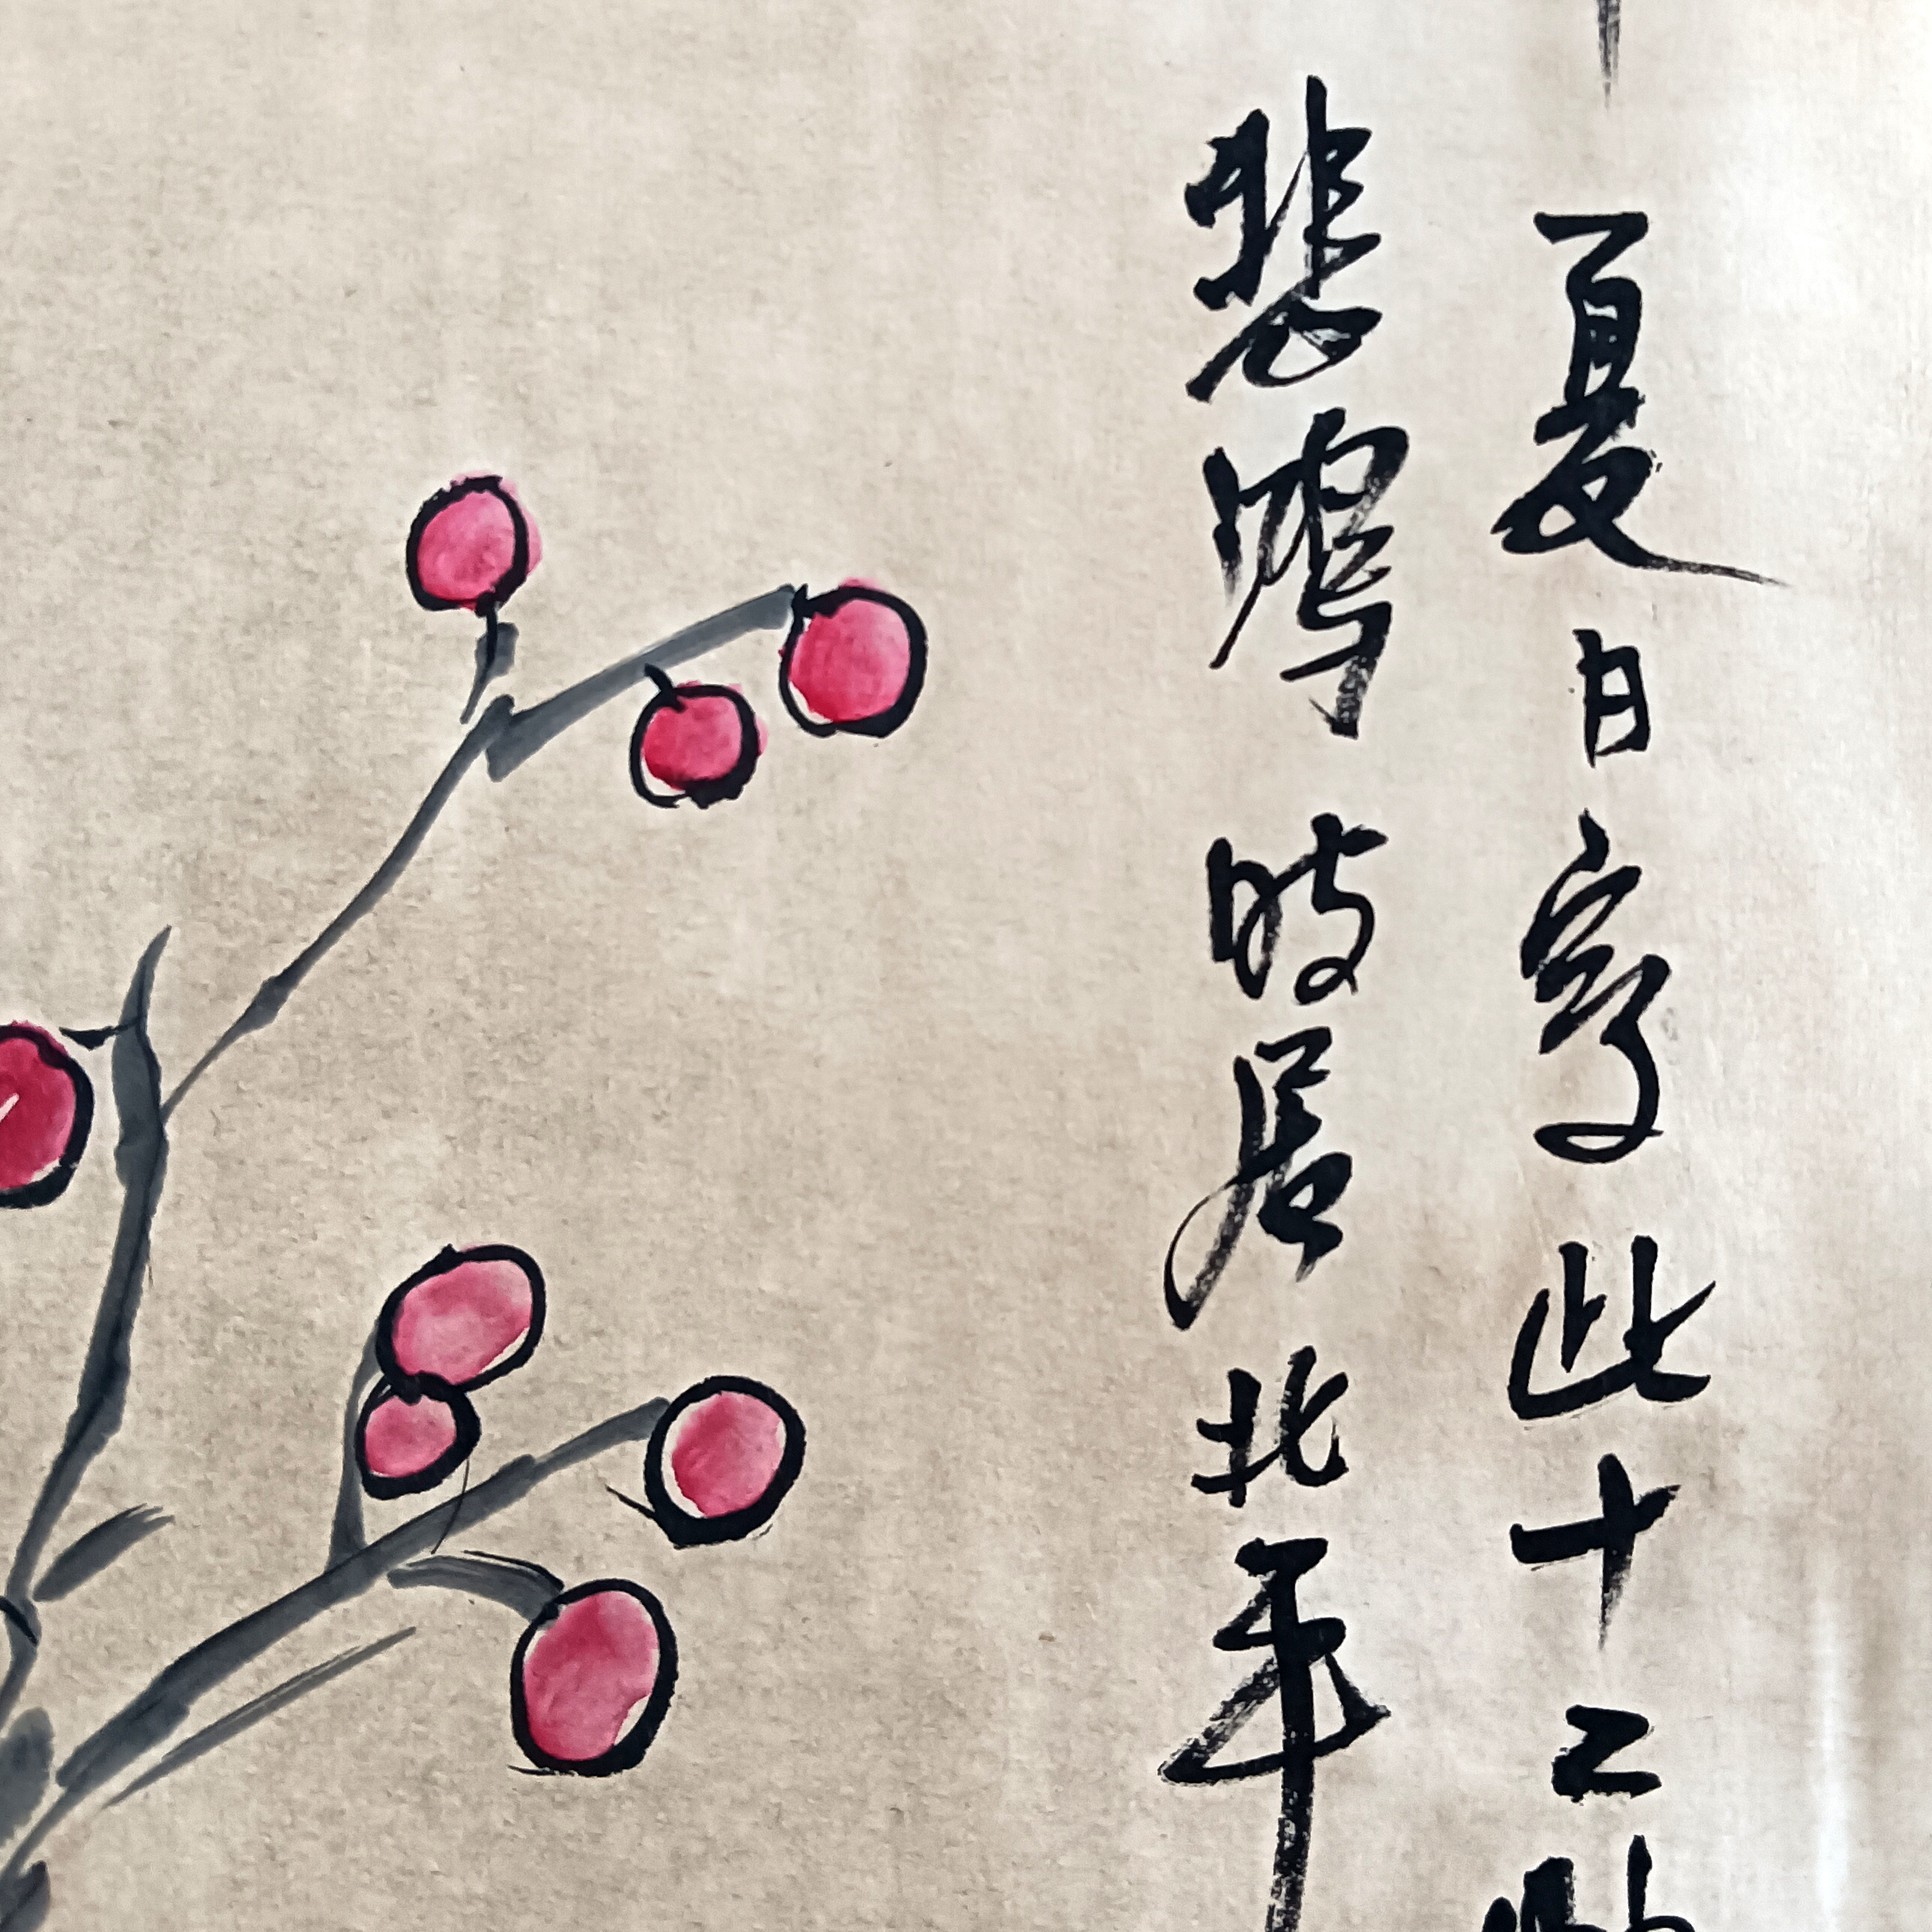 夏日写此十二
悲鸿时居北平